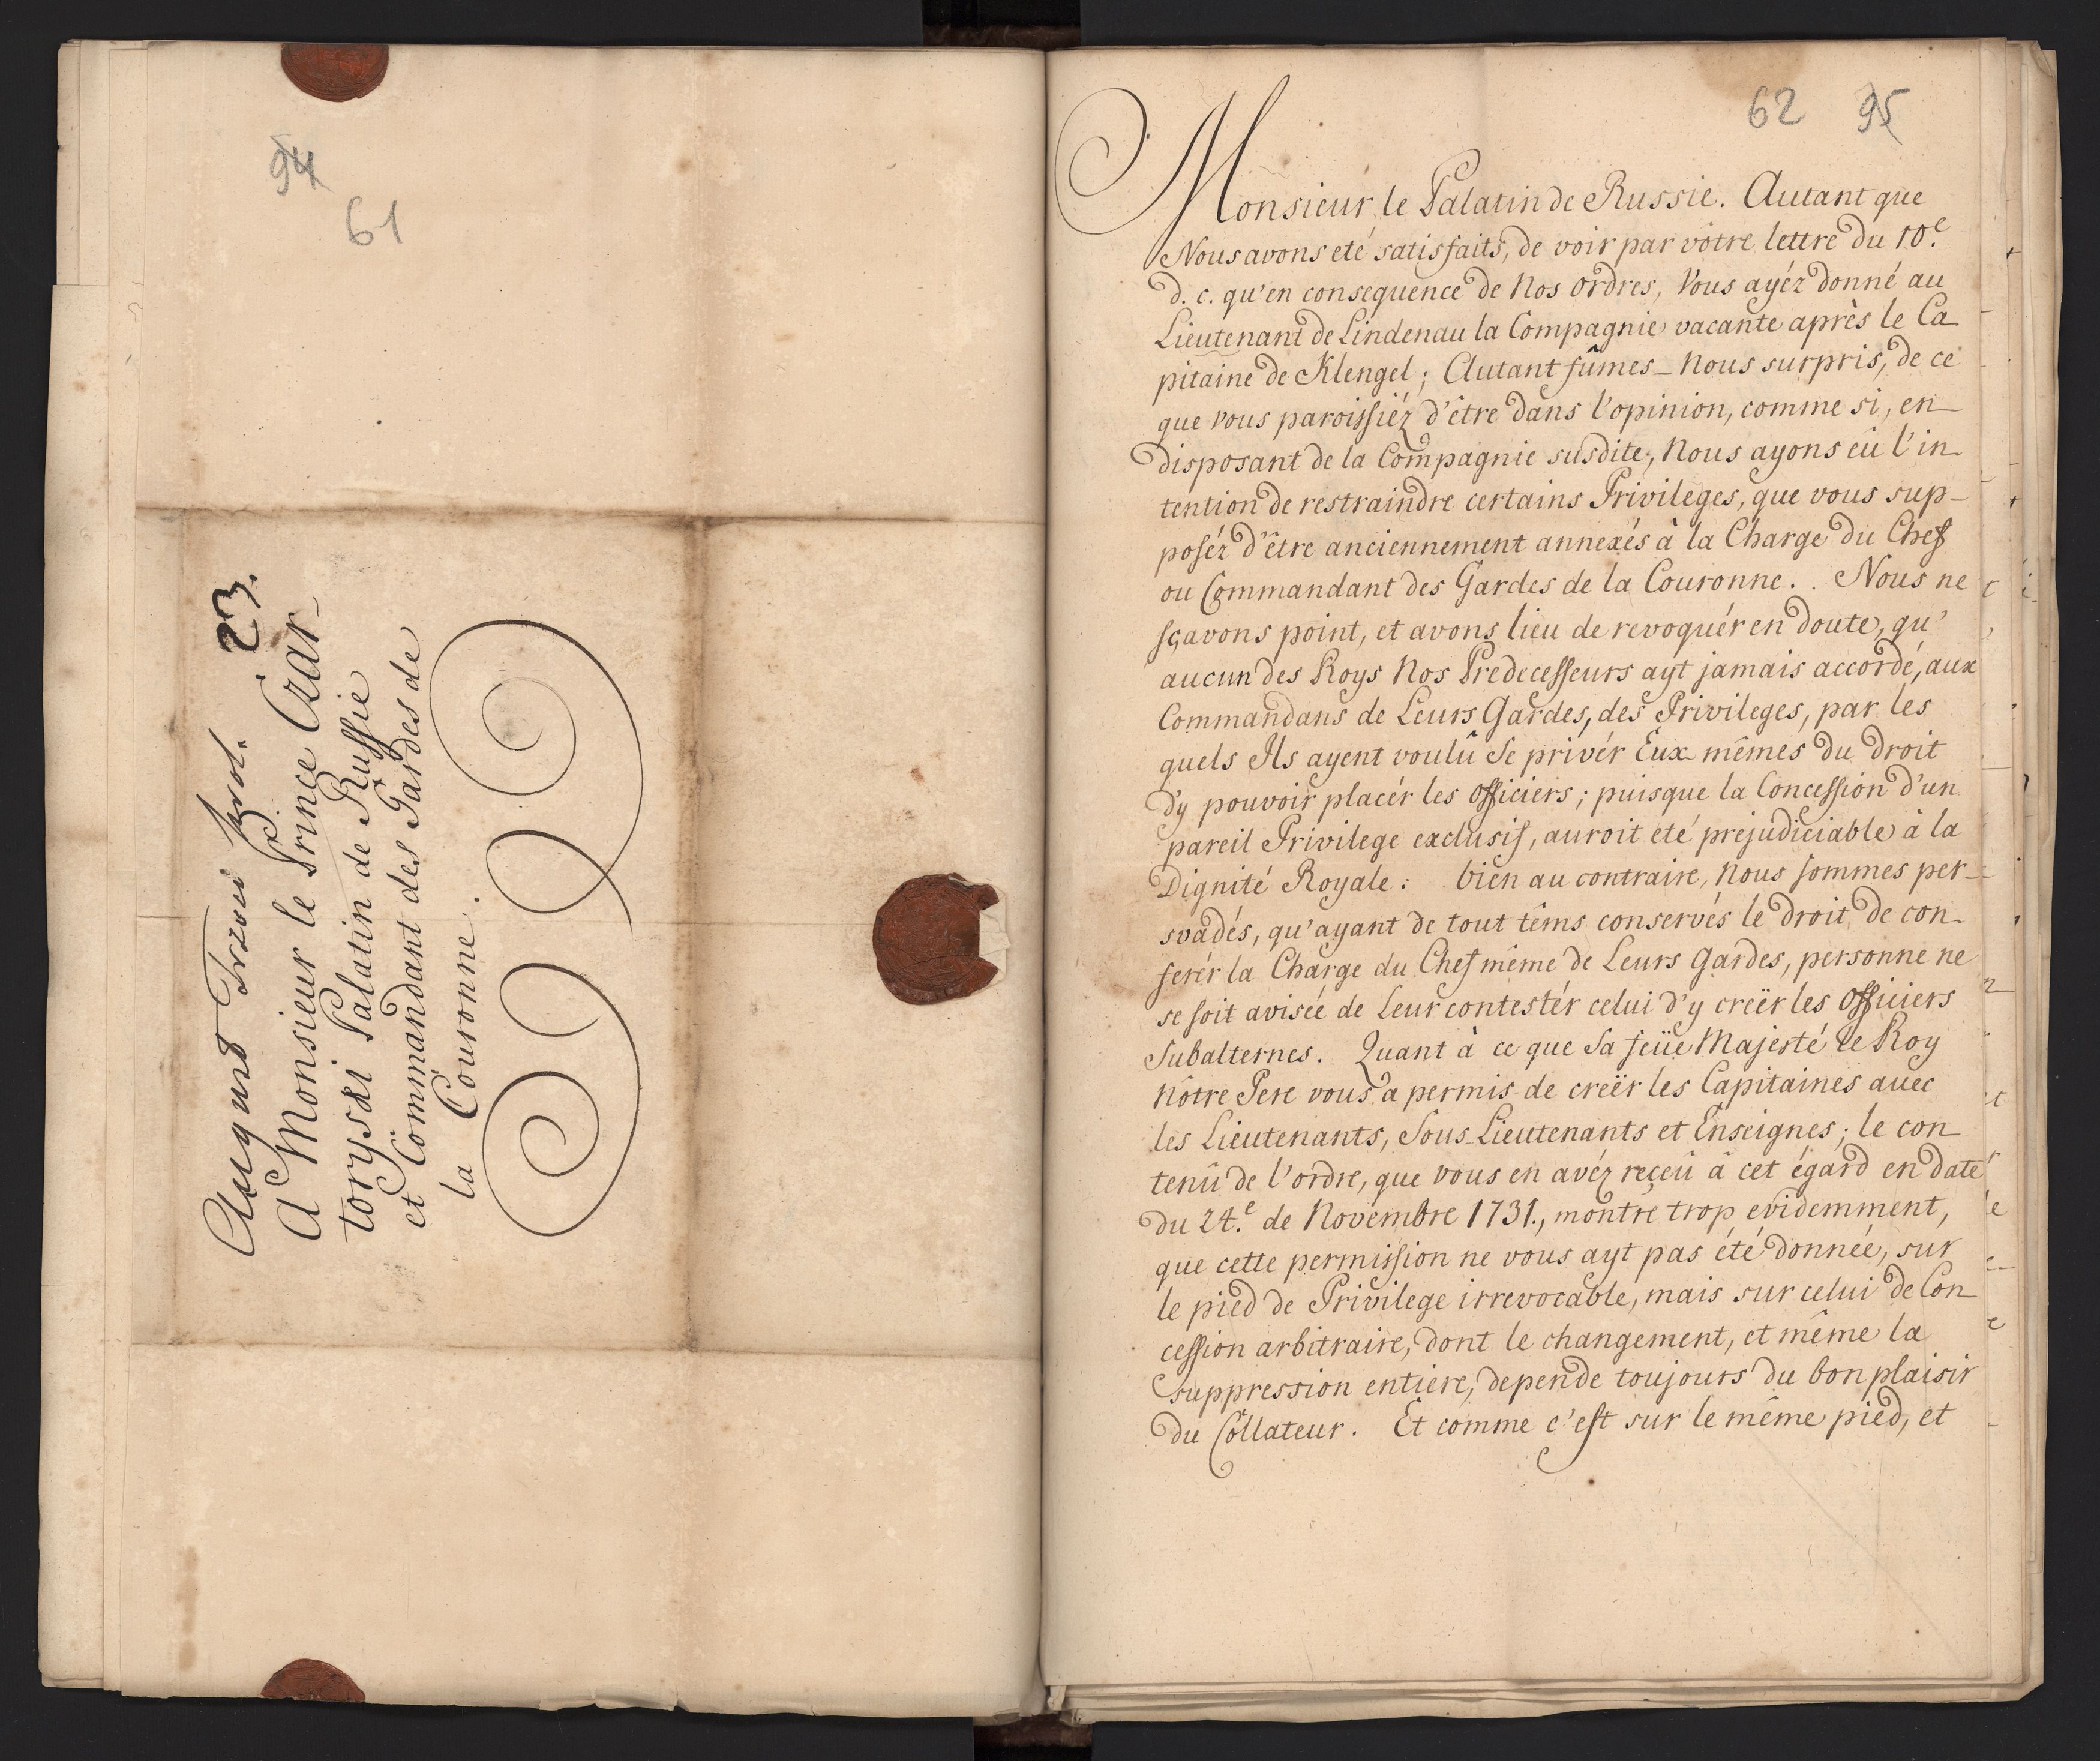 94
61
August Trzeci Krol. 23.
A Monsieur le Prince Czar-
toryski Palatin de Russie
et Commandant des Gardes de
la Couronne.
62 95
Monsieur le Palatin de Russie. Autant que
Nous avons eté satisfaits, de voir par vôtre lettre du 10.e
d. c. qu'en consequence de Nos ordres, Vous ayéz donné au
Lieutenant de Lindenau la Compagnie vacante après le Ca
pitaine de Klengel; Autant fûmes-Nous surpris, de ce
que vous paroissiéz d'être dans l'opinion, comme si, en
disposant de la Compagnie susdite, Nous ayons eû l'in
tention de restraindre certains Privileges, que vous sup-
poséz d'être anciennement annexés à la Charge du Chef
ou Commandant des Gardes de la Couronne. Nous ne
sçavons point, et avons lieu de revoquér en doute, qu'
aucun des Roys Nos Predecesseurs ayt jamais accordé, aux
Commandans de Leurs Gardes, des Privileges, par les
quels Ils ayent voulû Se privér Eux-mêmes du droit
d'y pouvoir placér les officiers; puisque la Concession d'un
pareil Privilege exclusif, auroit eté prejudiciable à la
Dignité Royale: bien au contraire, Nous sommes per-
svadés, qu'ayant de tout têms conservés le droit de con-
ferér la Charge du Chef même de Leurs Gardes, personne ne
se soit avisée de Leur contestér celui d'y creër les officiers
Subalternes. Quant à ce que Sa feüe Majesté le Roy
Nôtre Pere vous a permis de creër les Capitaines avec
les Lieutenants, Sous-Lieutenants et Enseignes; le con
tenû de l'ordre, que vous en avéz reçeû â cet égard en date
du 24.e de Novembre 1731., montre trop evidemment,
que cette permission ne vous ayt pas été donnée, sur
le pied de Privilege irrevocable, mais sur celui de Con
cession arbitraire, dont le changement, et même la
suppression entiere, depende toujours du bon plaisir
du Collateur. Et comme c'est sur le même pied, et